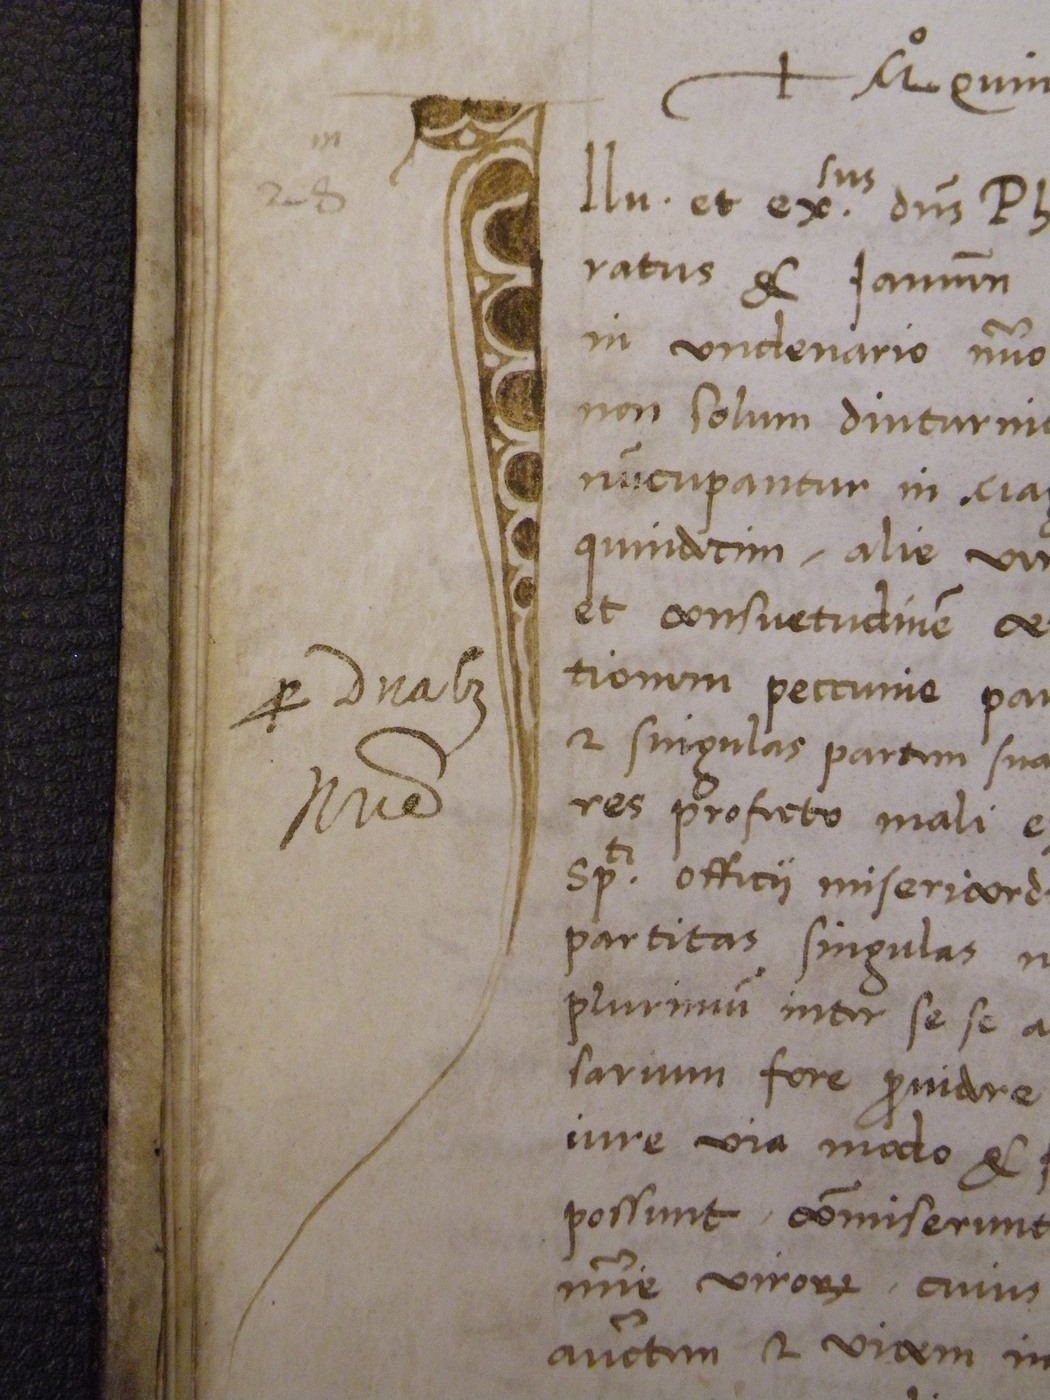 + Mº quin
m
28
llu. et ex.sus dn̄s Ph
ratus & Januen̄
in undenario nūo
non solum diuturnio
nūcupantur in
quindecim / alie
et consuetudinē
tionum peccunie par
⁊ singulas partem sua
res profecto mali
Sp.ti officij misericord
partitas singulas
plurimū inter se se a
sarium fore ꝓuidere
iure via modo &
possunt / com̄iserunt
viroꝝ / cuius
auctum ⁊ videm in
ꝑ Duabꝫ